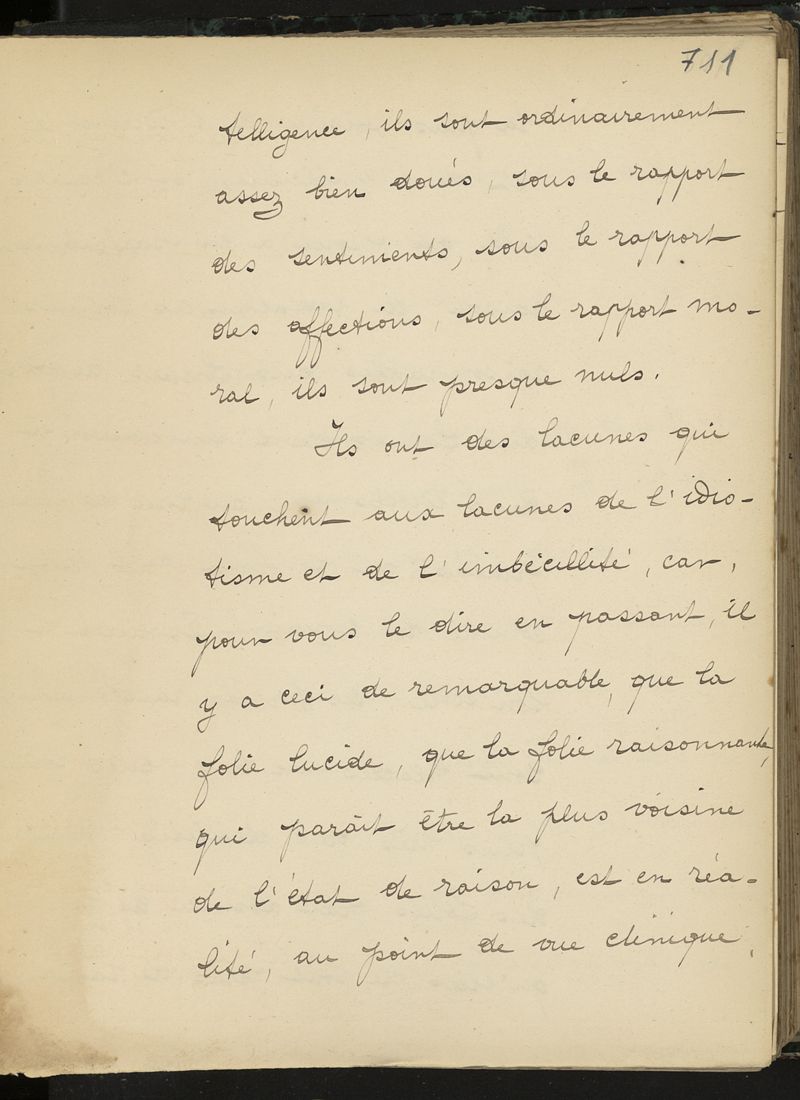 711
telligence, ils sont ordinairement
assez bien doués, sous le rapport
des sentiments, sous le rapport
des affections, sous le rapport mo-
ral, ils sont presque nuls.
Ils ont des lacunes qui
touchent aux lacunes de l'idio-
tisme et de l'imbécillité, car,
pour vous le dire en passant, il
y a ceci de remarquable, que la
folie lucide, que la folie raisonnante,
qui paraît être la plus voisine
de l'état de raison, est en réa-
lité, au point de vue clinique,